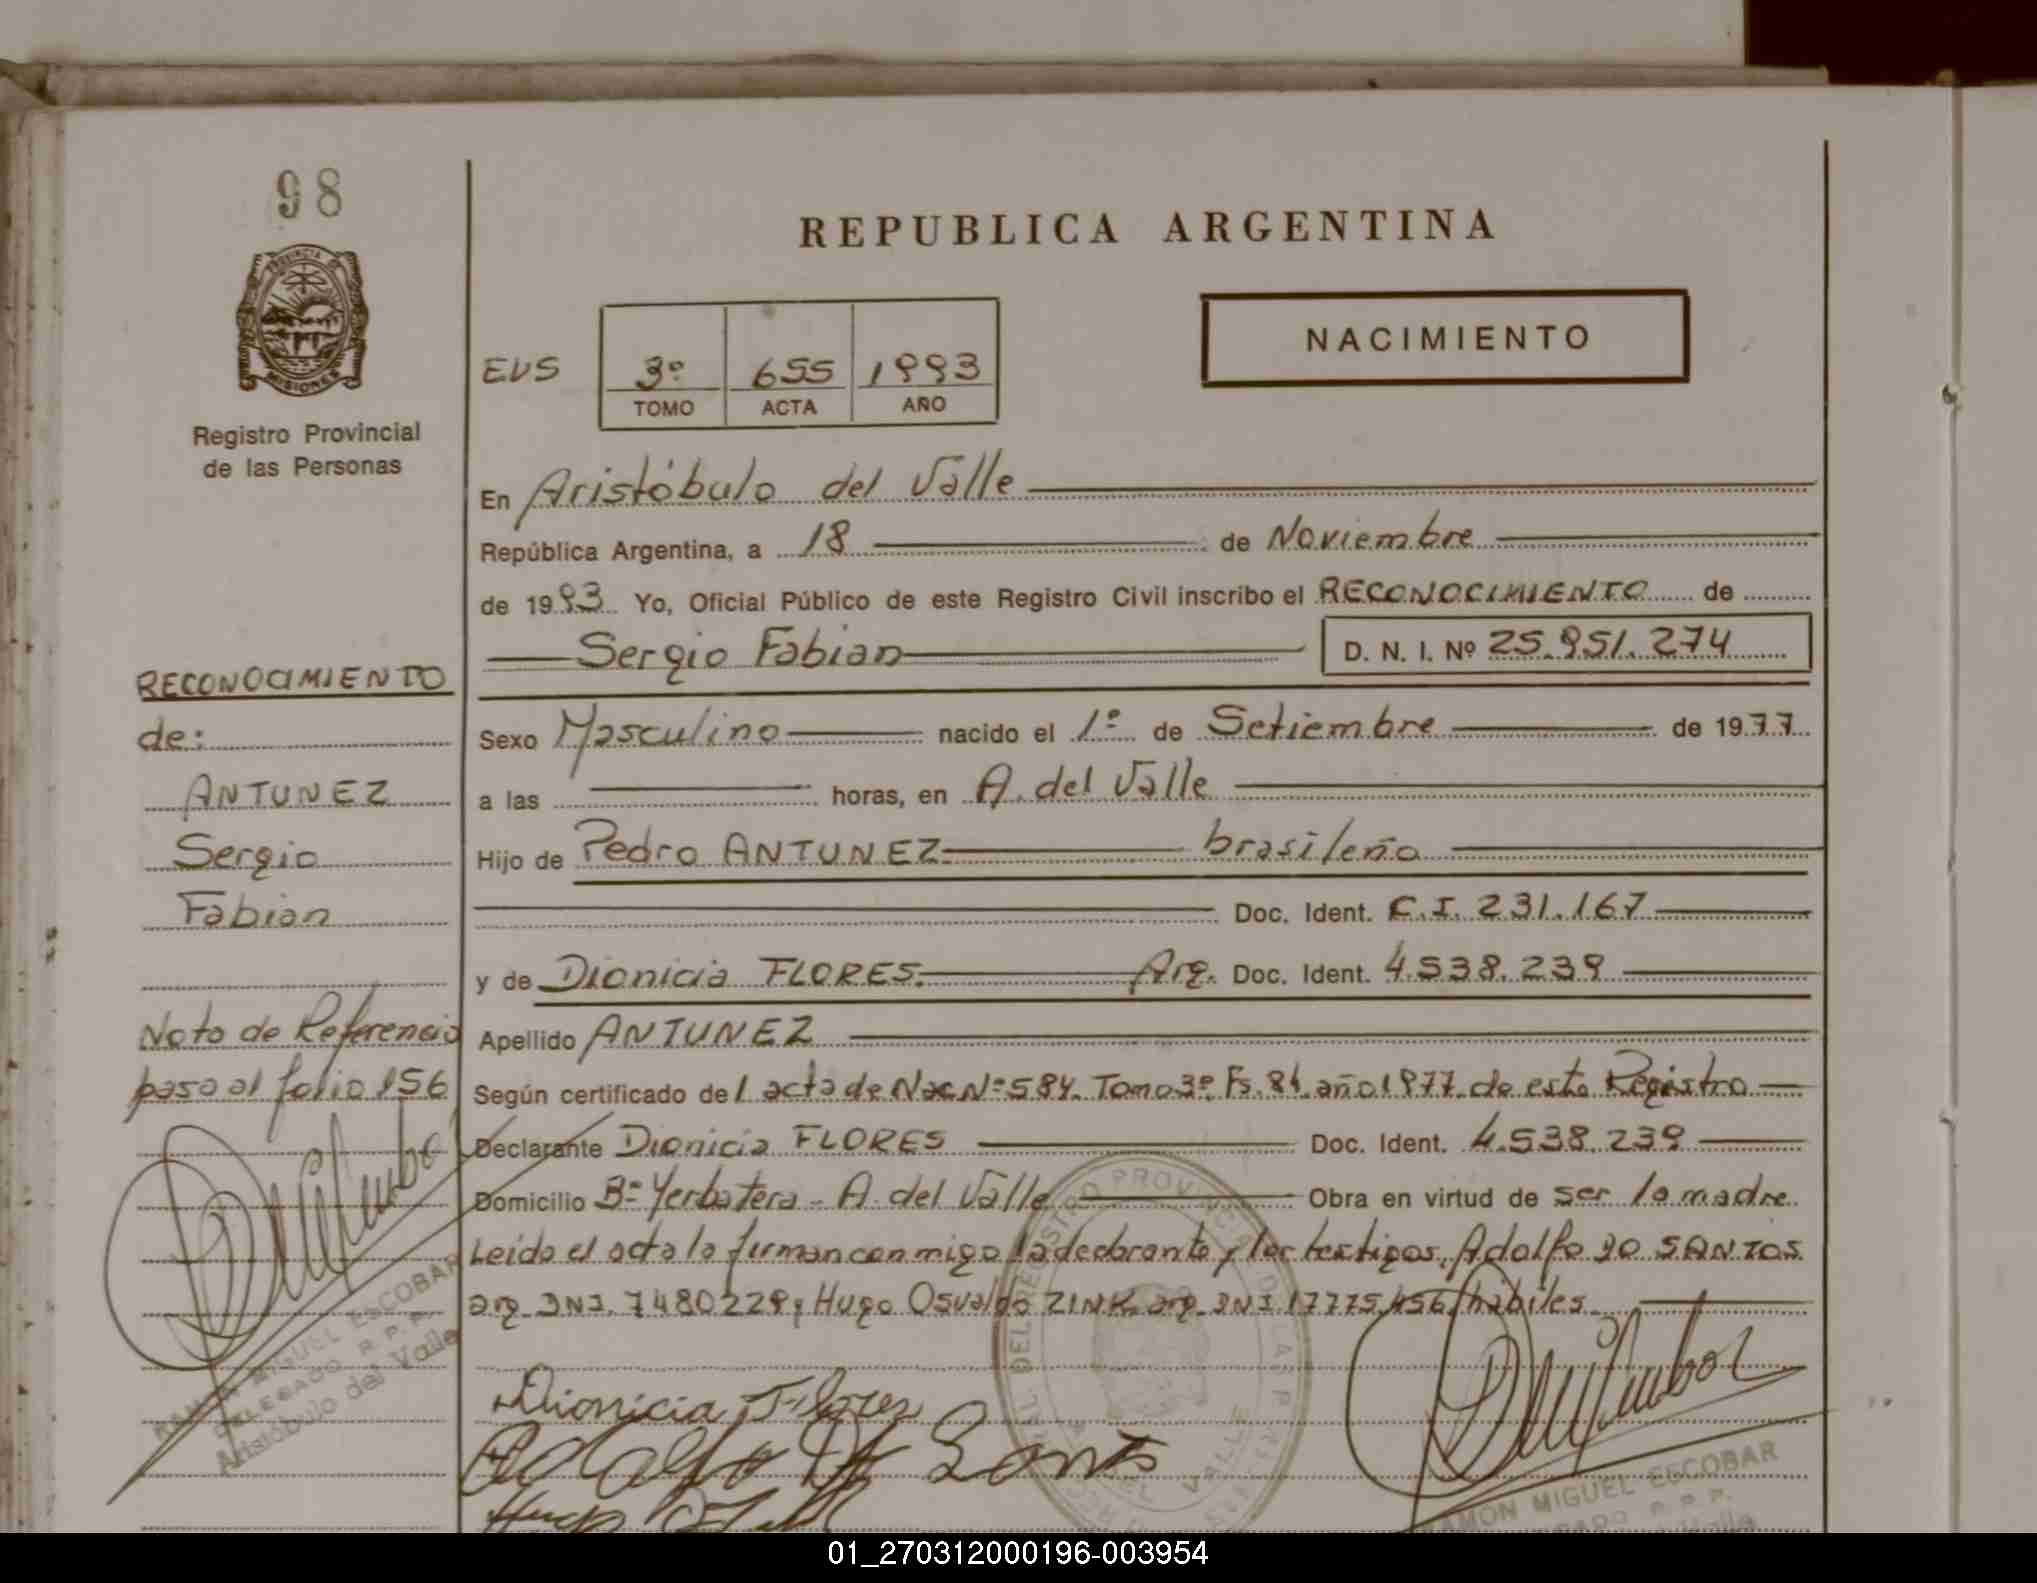 98
REPUBLICA ARGENTINA
PROVINCIA DE
MISIONES
Registro Provincial
de las Personas
EVS
3º 655 1993
TOMO ACTA AÑO
NACIMIENTO
En Aristóbulo del Valle
República Argentina, a 18 de Noviembre
de 1993 Yo, Oficial Público de este Registro Civil inscribo el RECONOCIMIENTO de
Sergio Fabian D. N. I. Nº 25.951.274
Sexo Masculino nacido el 1º de Setiembre de 1977
a las horas, en A. del Valle
Hijo de Pedro ANTUNEZ brasileño
Doc. Ident. C.I. 231.167
y de Dionicia FLORES. Arg. Doc. Ident. 4.538.239
Apellido ANTUNEZ
Según certificado del acta de Nac Nº 584. Tomo 3º. Fs. 81. año 1977. de este Registro
Declarante Dionicia FLORES Doc. Ident. 4.538.239
Domicilio Bº Yerbatera - A. del Valle Obra en virtud de ser la madre.
Leida el acta la firman conmigo la declarante y los testigos, Adolfo DO SANTOS
arg. DNI. 7480229; Hugo Osvaldo ZINK arg DNI 17775,456, hábiles
RECONOCIMIENTO
de:
ANTUNEZ
Sergio
Fabian
Nota de Referencia
pasa al folio 156
RAMON MIGUEL ESCOBAR
DELEGADO R.P.P.
Aristóbulo del Valle
Dionicia Flores
Adolfo Do Santos
Hugo
DEL REGISTRO PROVINCIAL DE LAS PERSONAS
DEL VALLE
RAMON MIGUEL ESCOBAR
R.P.P.
Valle
01_270312000196-003954